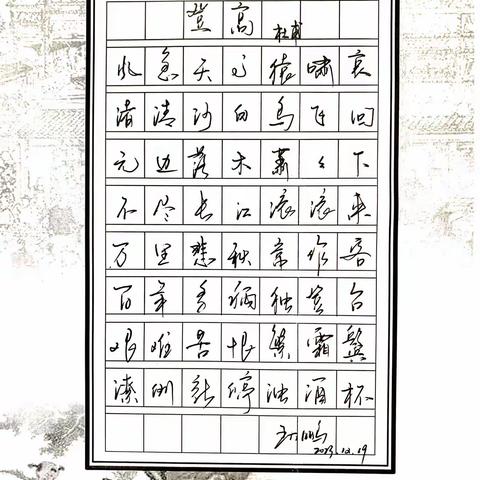 登高
杜甫
风急天高猿啸哀
渚清沙白鸟飞回
无边落木萧々下
不尽长江滚滚来
万里悲秋常作客
百年多病独登台
艰难苦恨繁霜鬓
潦倒新停浊酒杯
2023.12.19